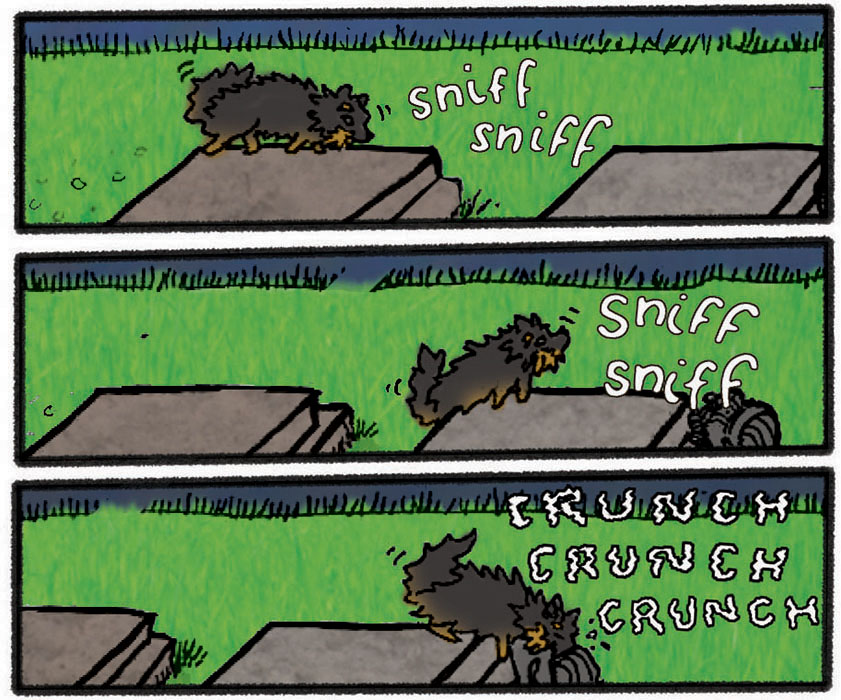 sniff
sniff
sniff
sniff
CRUNCH
CRUNCH
CRUNCH